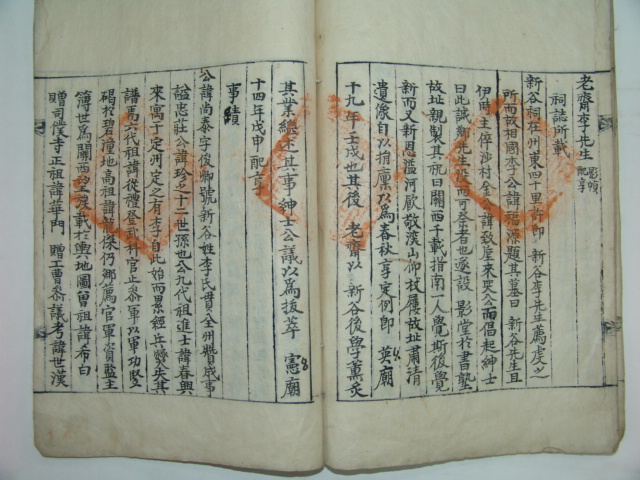 老齋李先生 影幀配享
祠誌所載
新谷祠在州東四十里許即 新谷李先生薦虔之
所而故相國李公諱福源題其墓曰 新谷先生且
伊時主倅沙村金公諱致 來哭公而倡起紳士
曰此鄉先生沒而可祭者也遂設 影堂於書塾
故址親製其祝曰關西千載指南一人覺斯後覺
新而又新恩濫河歐敬溪山仰杖屨故址肅清
遺像自以揹廩以爲春秋享定例即 英廟
十九年壬戌也其後 老齋以 新谷後學薰炙
其業經 其事紳士公議以爲拔萃 憲廟
十四年戊申配享
事蹟
公諱尚泰字俊卿號新谷姓李氏貫全州 成事
謚忠壯公諱珍之十二世孫也公九代祖進士諱春興
來寓于定州定之有李自此始而累經兵燹失其
譜焉六代祖諱從禮登武科官止參軍以軍功竪
碣於碧潼地高祖諱 傑仍鄉薦官軍資監主
簿世爲關西望族載於輿地圖曾祖諱希白
贈司僕寺正祖諱華門 贈工曹參議考諱世漢